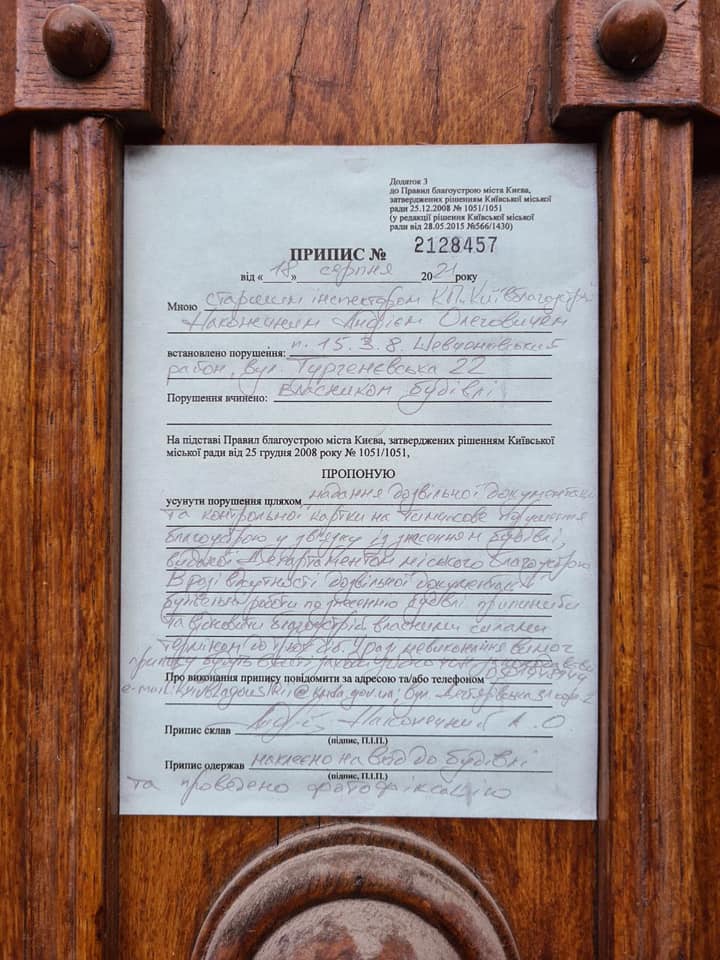 Додаток 3
до Правил благоустрою міста Києва,
затверджених рішенням Київської міської
ради 25.12.2008 № 1051/1051
(у редакції рішення Київської міської
ради від 28.05.2015 №566/1430)
ПРИПИС № 2128457
від « 18 » серпня 2021 року
Мною старшим інспектором КП "Київблагоустрій"
Наконечним Андрієм Олеговичем
встановлено порушення: п. 15.3.8. Шевченківський
район, вул. Тургенєвська 22
Порушення вчинено: власником будівлі
На підставі Правил благоустрою міста Києва, затверджених рішенням Київської
міської ради від 25 грудня 2008 року № 1051/1051,
ПРОПОНУЮ
усунути порушення шляхом надання дозвільної документації
та контрольної картки на тимчасове порушення
благоустрою у звязку із знесенням будівлі,
виданої Департаментом міського благоустрою
В разі відсутності дозвільної документації
будівельні роботи по знесенню будівлі припинити
та відновити благоустрій власними силами
терміном до діб. В разі невиконання вимог
припису будуть вжиті заходи
Про виконання припису повідомити за адресою та/або телефоном
e-mail: kyivblagoustrii@kmda.gov.ua; вул. Дегтярівська 31 кор. 2
Припис склав Наконечний А.О
(підпис, П.І.П.)
Припис одержав наклеєно на вхід до будівлі
(підпис, П.І.П.)
та проведено фотофіксацію